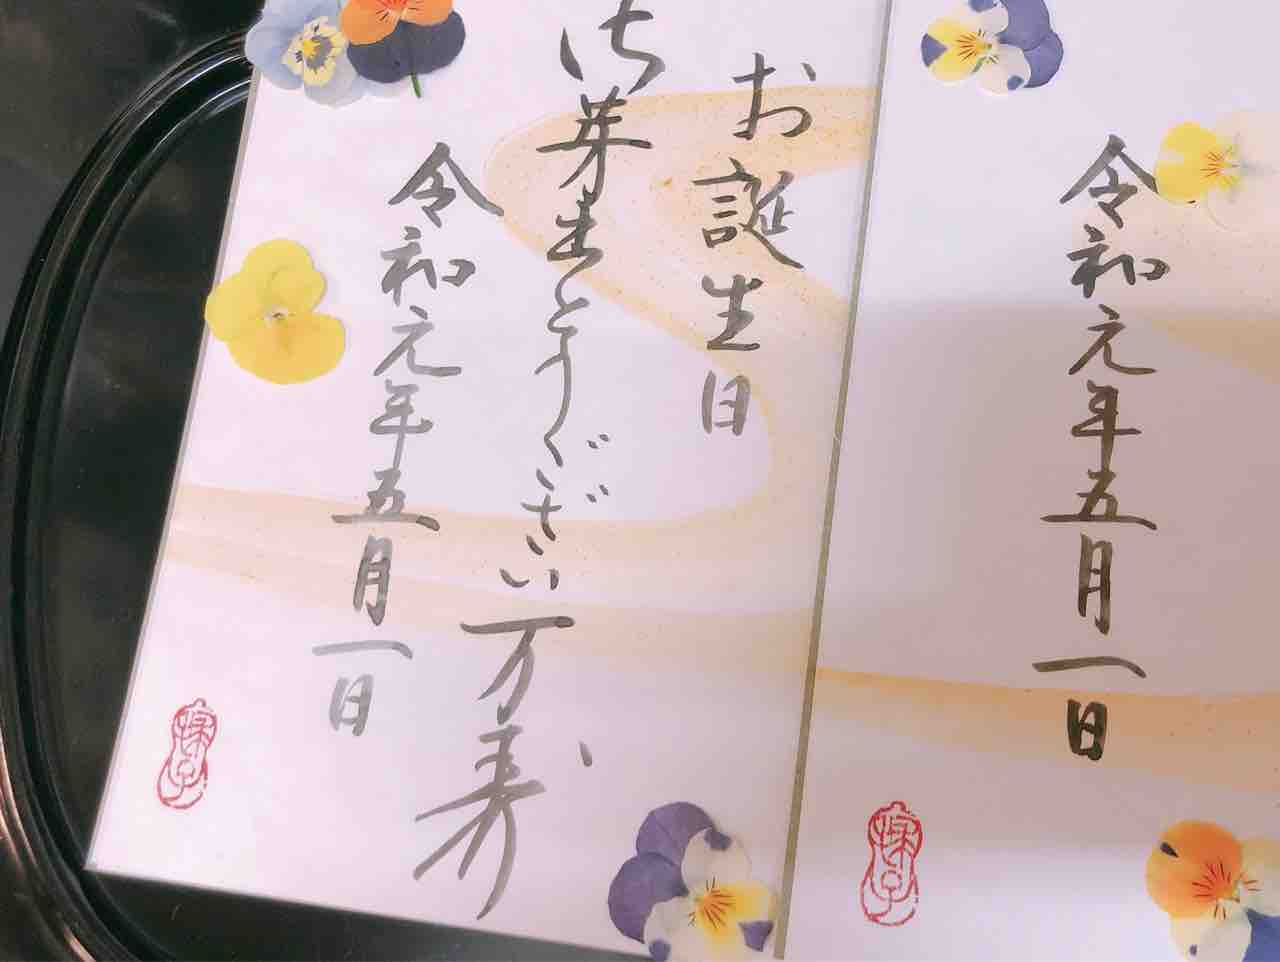 お誕生日
御芽出とうござい万寿
令和元年五月一日
令和元年五月一日